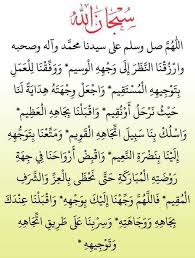 سُبْحَانَ اللّٰه
اللَّهُمَّ صل وسلم على سيدنا محمّد وآله وصحبه
وارزُقْنَا النَّظَرَ إِلَى وَجْهِهِ الْوَسِيمِ * وَوَفِّقْنَا لِلْعَمَلِ
بِتَوْجِيهِهِ الْمُسْتَقِيمِ * وَاجْعَلْ وِجْهَتَهُ هِدَايَةً لَنَا
حَيْثُ نَرْحَلُ أَوْ نُقِيمُ * وَاقْبَلْنَا بِجَاهِهِ الْعَظِيمِ *
وَاسْلُكْ بِنَا سَبِيلَ اتِّجَاهِهِ الْقَوِيمِ * وَمَتِّعْنَا بِتَوَجُّهِهِ
إِلَيْنَا بِنَضْرَةِ النَّعِيمِ * وَاقْبِضْ أَرْوَاحَنَا فِي جِهَةِ
رَوْضَتِهِ الْمُبَارَكَةِ حَتَّى نَحْظَى بِالْعِزِّ وَالشَّرَفِ
الْمُقِيمِ * فَاللَّهُمَّ وَجِّهْنَا إِلَيْكَ بِوَجْهِهِ * وَاقْبَلْنَا عِنْدَكَ
بِجَاهِهِ وَوَجَاهَتِهِ * وَسِرْ بِنَا عَلَى طَرِيقِ اتِّجَاهِهِ
وَتَوْجِيهِهِ *